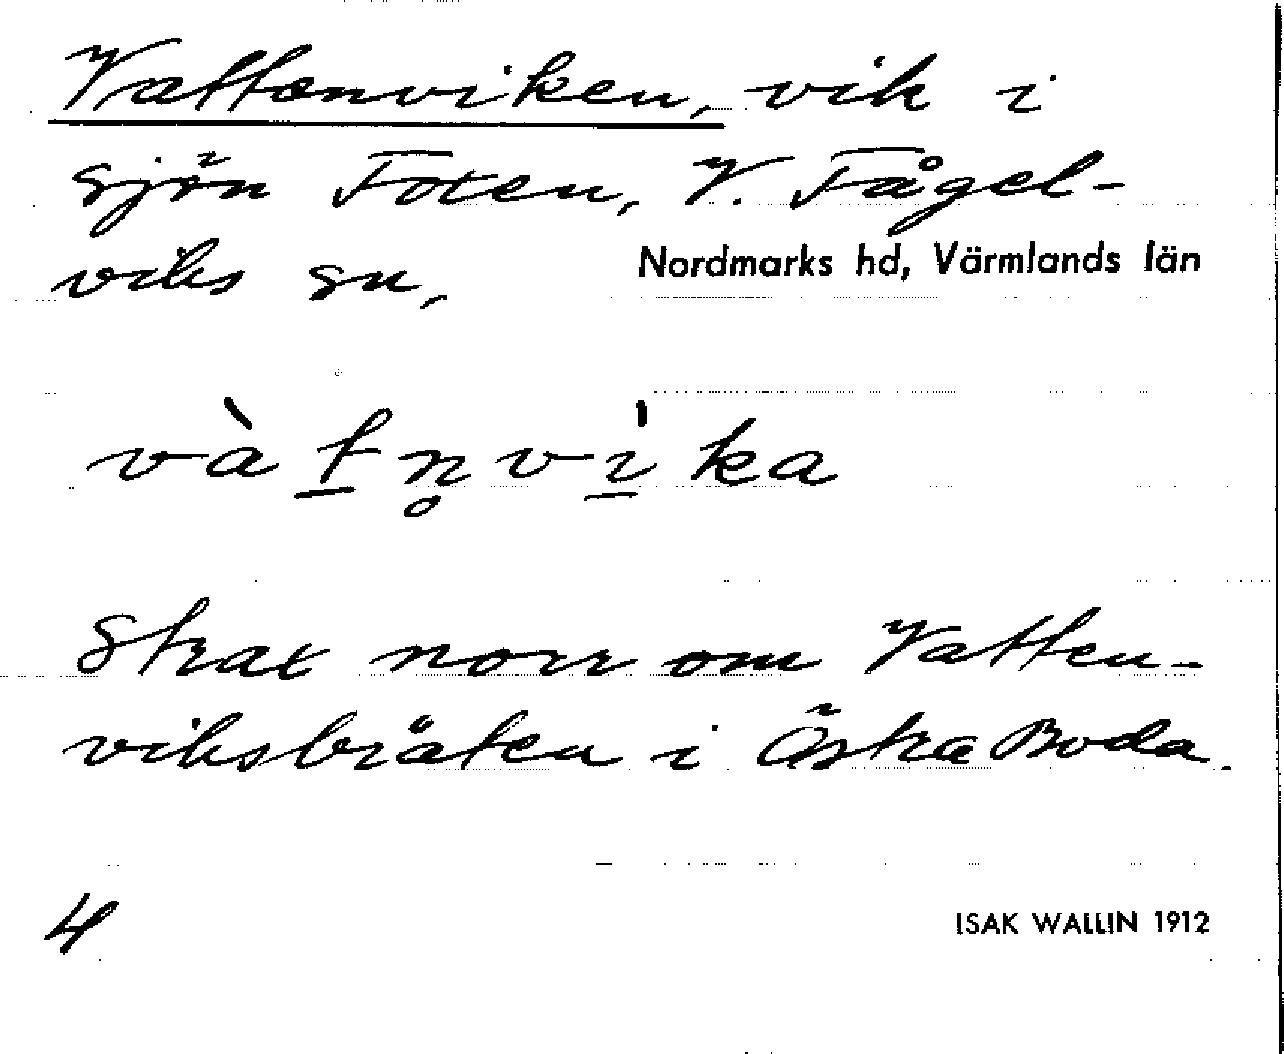 Vattenviken, vik i
sjön Foxen, V. Fågel-
viks sn,
Nordmarks hd, Värmlands län
và t̲n̥vi̲̍ka
Strax norr om Vatten-
viksbråten i Östra Boda.
4
ISAK WALLIN 1912